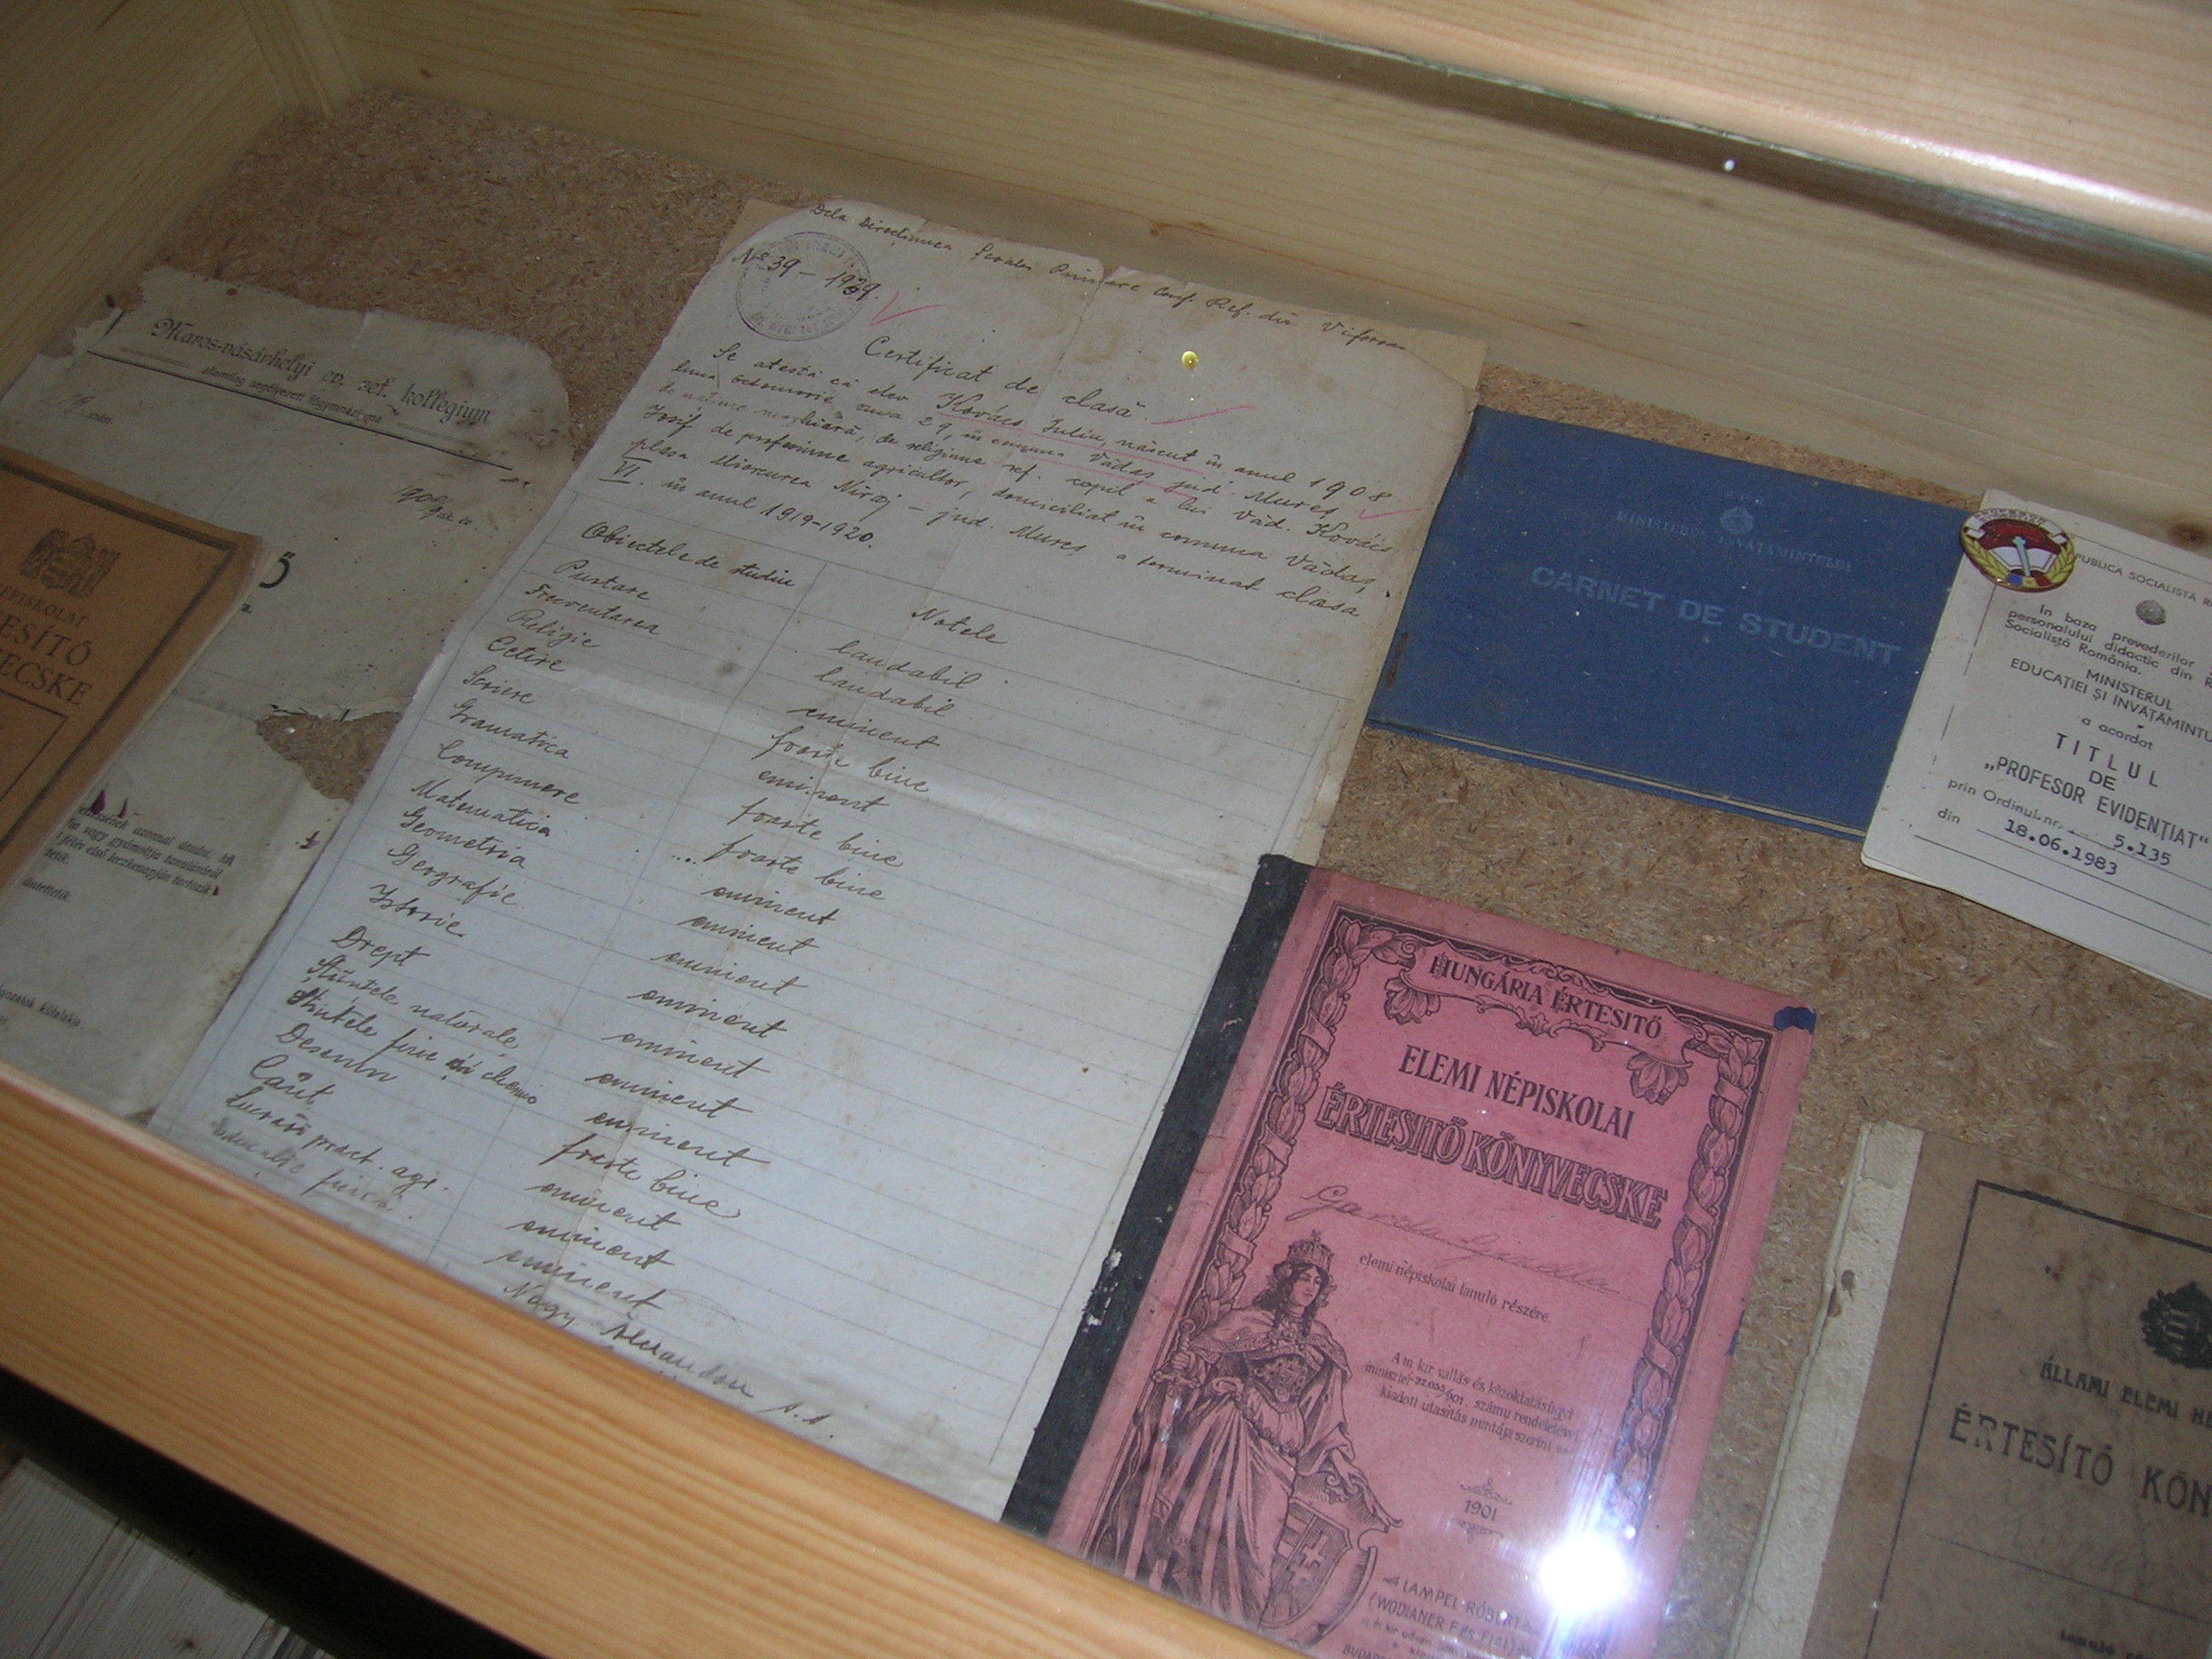 Maros-vásárhelyi ev. ref. kollegium
államilag segélyezett főgymnáziuma
szám
1908
NÉPISKOLAI
ÉRTESÍTŐ
KÖNYVECSKE
Dela Direcțiunea Școalei Primare Conf. Ref. din Viforoasa
No 39 – 1929.
Certificat de clasă
Se atestă că elev Kovács Iuliu, născut în anul 1908
luna Octomvrie ziua 29, în comuna Vádaș jud. Mureș
de națiune maghiară, de religiune ref. copil a lui Văd. Kovács
Iosif de profesiune agricultor, domiciliat în comuna Vádaș,
plasa Miercurea Niraj – jud. Mureș a terminat clasa
VI. în anul 1919-1920.
Obiectele de studiu Notele
Purtare laudabil
Frecventarea laudabil
Religie eminent
Cetire foarte bine
Scriere eminent
Gramatica foarte bine
Compunere foarte bine
Matematica eminent
Geometria eminent
Geografie eminent
Istorie eminent
Drept eminent
Științele naturale eminent
Științele fizic și chemie eminent
Desemn foarte bine
Cânt eminent
Lucrări pract. agr. eminent
Educație fizică eminent
Nagy Alexandru
MINISTERUL INVĂȚĂMINTULUI
CARNET DE STUDENT
PUBLICA SOCIALISTA
In baza prevederilor
personalului didactic din
Socialistă România.
MINISTERUL
EDUCAȚIEI ȘI INVĂȚĂMINTU
a acordat
TITLUL
DE
„PROFESOR EVIDENȚIAT“
prin Ordinul nr. 5.135
din 18.06.1983
HUNGÁRIA ÉRTESITŐ
ELEMI NÉPISKOLAI
ÉRTESITŐ KÖNYVECSKE
elemi népiskolai tanuló részére.
A m. kir. vallás és közoktatásügyi
miniszter 32055/901. számu rendeletével
kiadott utasítás mintája szerint
1901
LAMPEL RÓBERT
(WODIANER F. és FIAI)
BUDAPEST
ÁLLAMI ELEMI
ÉRTESÍTŐ KÖN
tanuló